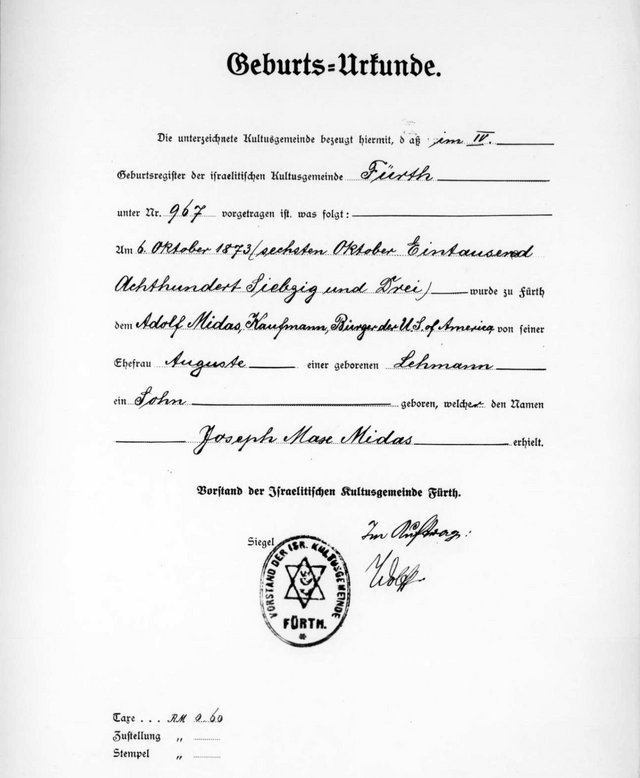 Geburts=Urkunde.
Die unterzeichnete Kultusgemeinde bezeugt hiermit, daß im IV.
Geburtsregister der israelitischen Kultusgemeinde Fürth
unter Nr. 967 vorgetragen ist, was folgt:
Am 6. Oktober 1873 (sechsten Oktober Eintausend
Achthundert Siebzig und Drei) wurde zu Fürth
dem Adolf Midas, Kaufmann, Bürger der U.S. of America von seiner
Ehefrau Auguste einer geborenen Lehmann
ein Sohn geboren, welcher den Namen
Joseph Max Midas erhielt.
Vorstand der Israelitischen Kultusgemeinde Fürth.
Im Auftrag:
Siegel
Wolff
VORSTAND DER ISR. KULTUSGEMEINDE
FÜRTH.
Taxe . . . RM 0.60
Zustellung „
Stempel „